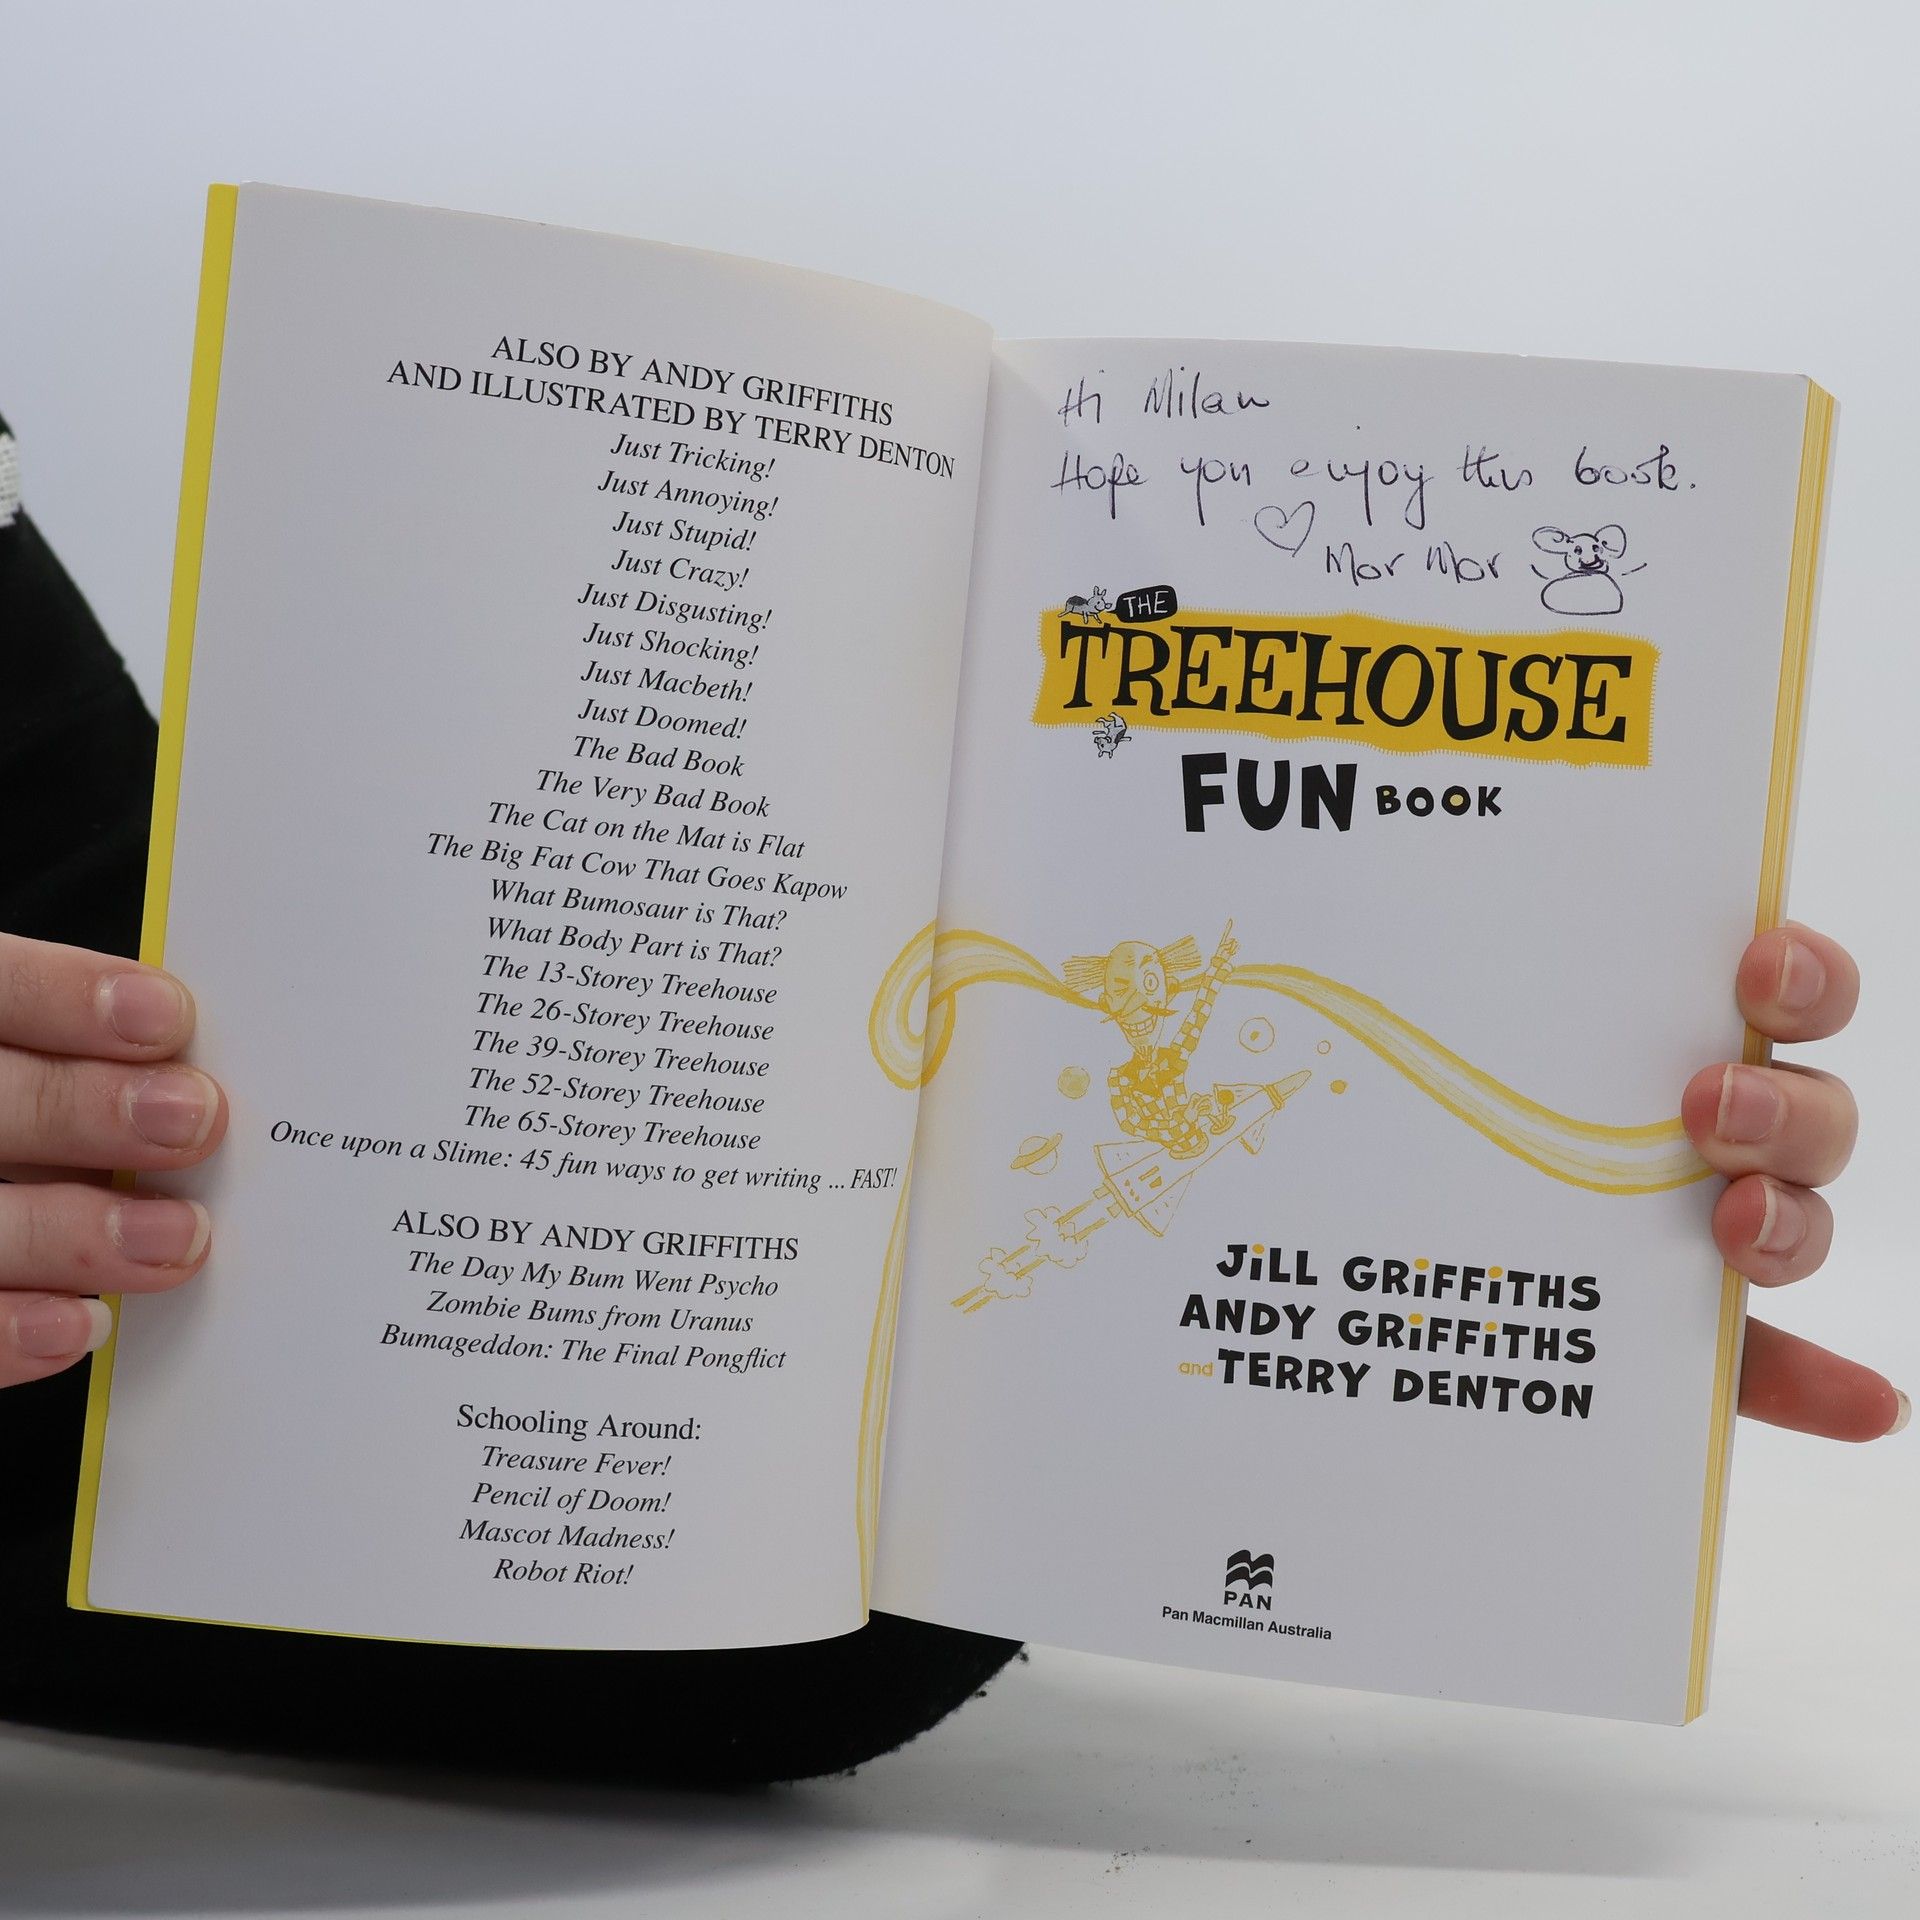 ALSO BY ANDY GRIFFITHS
AND ILLUSTRATED BY TERRY DENTON
Just Tricking!
Just Annoying!
Just Stupid!
Just Crazy!
Just Disgusting!
Just Shocking!
Just Macbeth!
Just Doomed!
The Bad Book
The Very Bad Book
The Cat on the Mat is Flat
The Big Fat Cow That Goes Kapow
What Bumosaur is That?
What Body Part is That?
The 13-Storey Treehouse
The 26-Storey Treehouse
The 39-Storey Treehouse
The 52-Storey Treehouse
The 65-Storey Treehouse
Once upon a Slime: 45 fun ways to get writing ... FAST!
ALSO BY ANDY GRIFFITHS
The Day My Bum Went Psycho
Zombie Bums from Uranus
Bumageddon: The Final Pongflict
Schooling Around:
Treasure Fever!
Pencil of Doom!
Mascot Madness!
Robot Riot!
Hi Milan
Hope you enjoy this book.
♡ Mor Mor
THE
TREEHOUSE
FUN BOOK
JiLL GRiFFiTHS
ANDY GRiFFiTHS
and TERRY DENTON
PAN
Pan Macmillan Australia